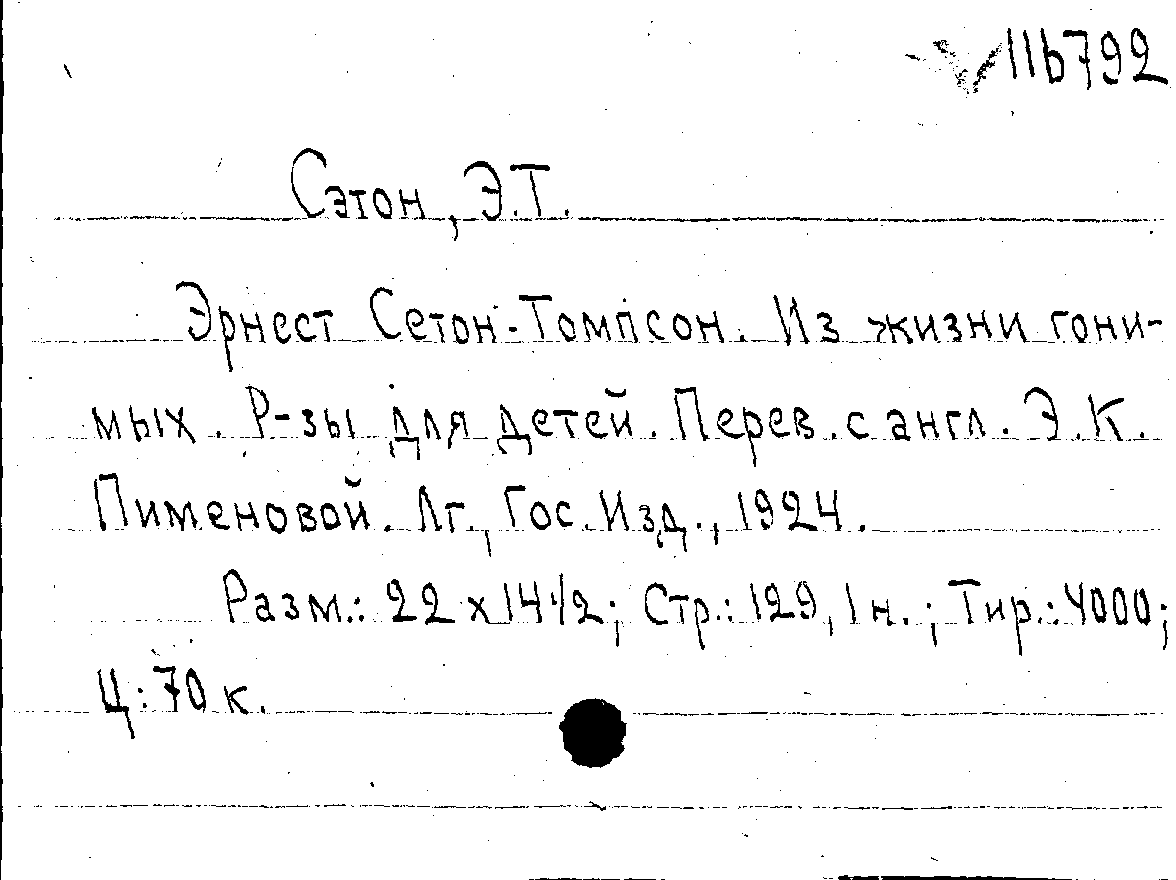 116792
Сэтон, Э.Т.
Эрнест Сетон-Томпсон. Из жизни гони-
мых. Р-зы для детей. Перев. с англ. Э.К.
Пименовой. Лг., Гос. Изд., 1924.
Разм.: 22 x 14 1/2; Стр.: 129, 1 н.; Тир.: 4000;
Ц: 70 к.